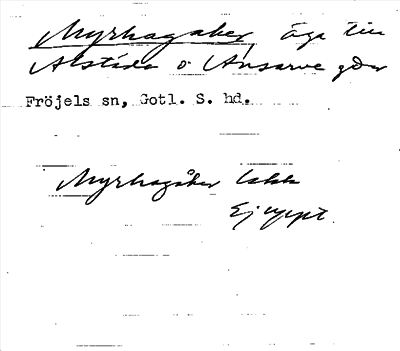 Myrhagaker, äga till
Alstäde o. Ansarve gdar
Fröjels sn, Gotl. S. hd.
Myrhagåker
Ej uppt.